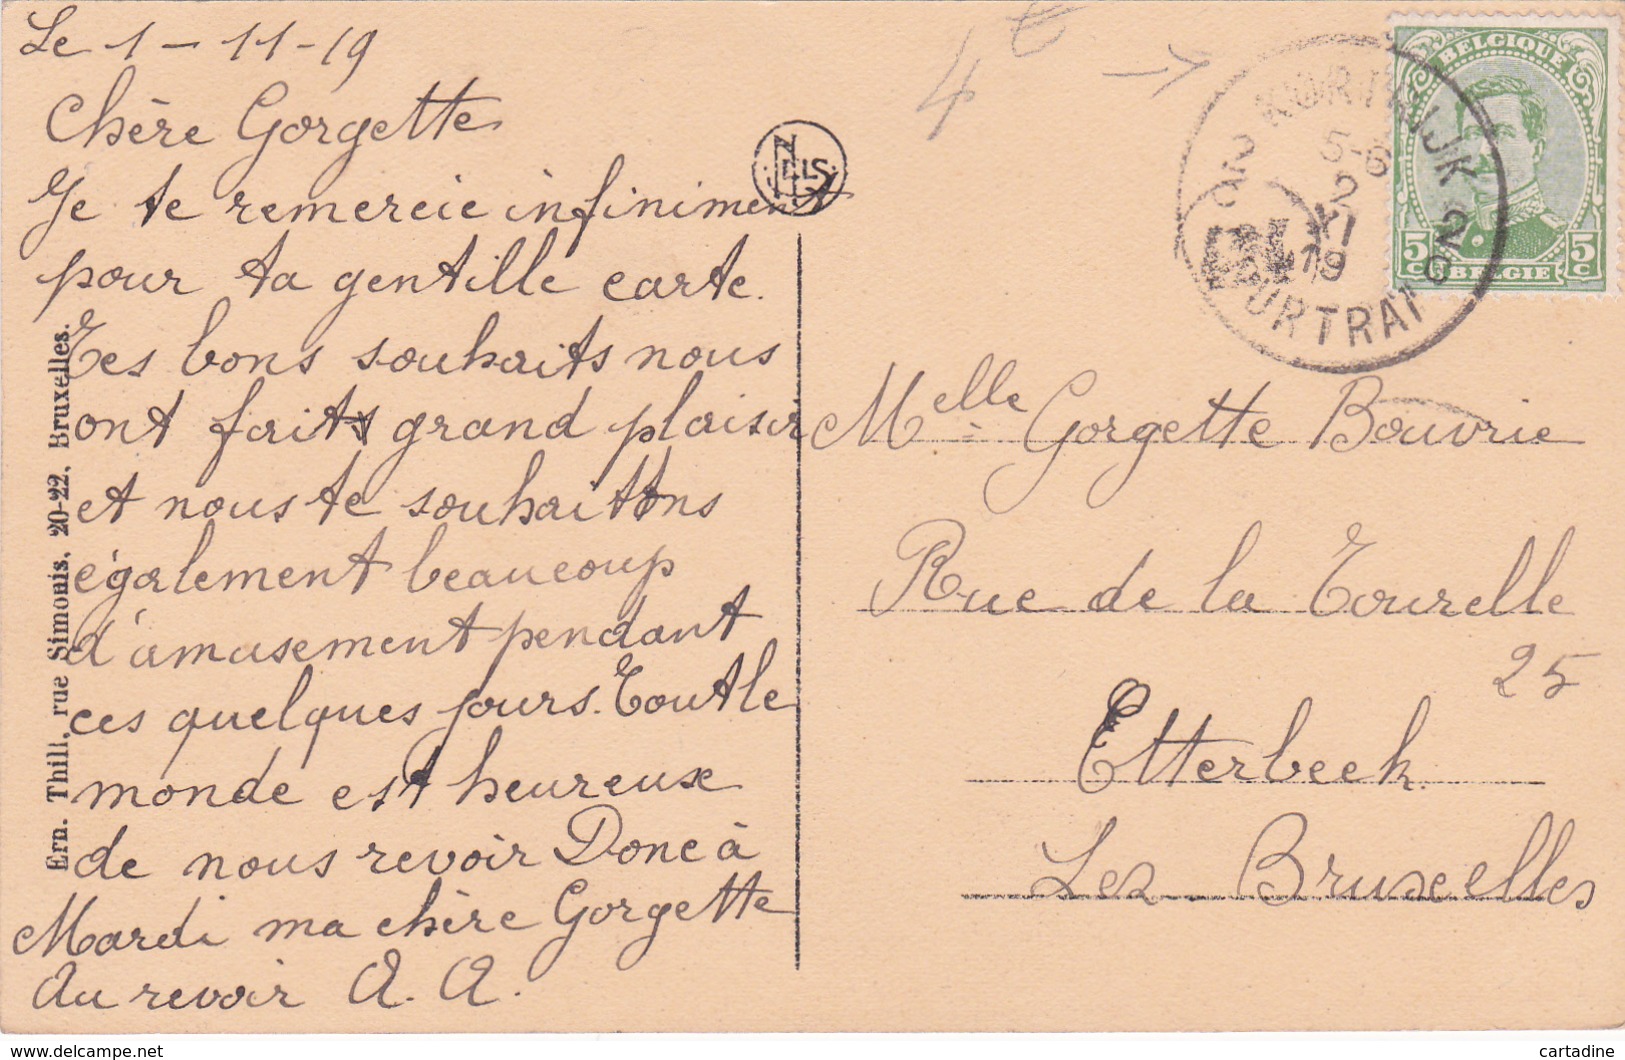 Le 1 - 11 - 19
Chère Gorgette
Je te remercie infiniment
pour ta gentille carte.
Tes bons souhaits nous
ont faits grand plaisir
et nous te souhaittons
également beaucoup
d'amusement pendant
ces quelques jours. Tout le
monde est heureuse
de nous revoir Donc à
Mardi ma chère Gorgette
Au revoir A. A.
Ern. Thill, rue Simonis, 20-22, Bruxelles.
NELS
4 €
KORTRIJK
5-6
2
XI
19
COURTRAI
2c 2c
BELGIQUE
5c 5c
BELGIE
Melle Gorgette Bouvrie
Rue de la Tourelle
25
Etterbeek
Lez-Bruxelles
www.delcampe.net
cartadine